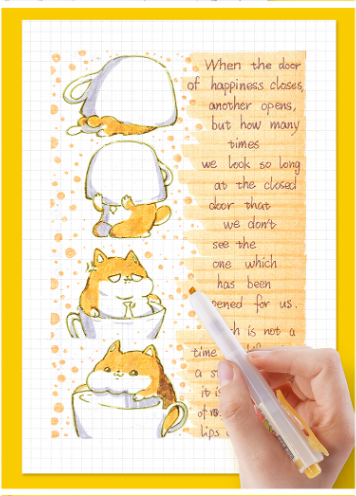 When the door
of happiness closes,
another opens,
but how many
times
we look so long
at the closed
door that
we don't
see the
one which
has been
pened for us.
is not a
time
a
it is
lips